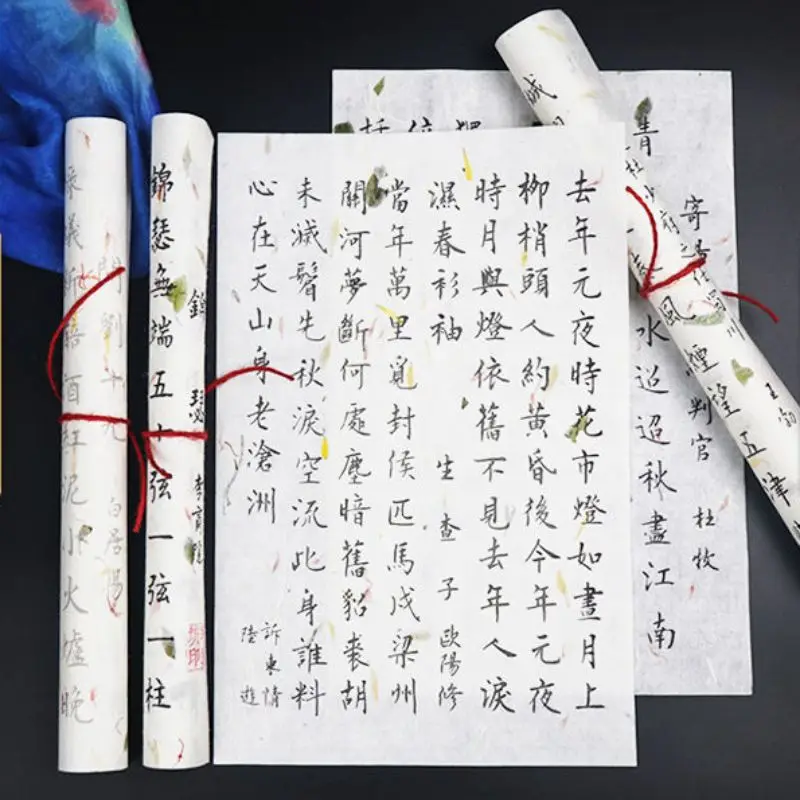 去年元夜時花市燈如晝月上
柳梢頭人約黃昏後今年元夜
時月與燈依舊不見去年人淚
濕春衫袖 生查子 歐陽修
當年萬里覓封侯匹馬戍梁州
關河夢斷何處塵暗舊貂裘胡
未滅鬢先秋淚空流此身誰料
心在天山身老滄洲 訴衷情
陸遊
寄 判官 杜牧
青 水迢迢秋盡江南
城
杜少府之 川 王勃
風煙望五津
錦瑟 李商隱
錦瑟無端五十弦一弦一柱
問劉十九 白居易
綠蟻新醅酒紅泥小火爐晚